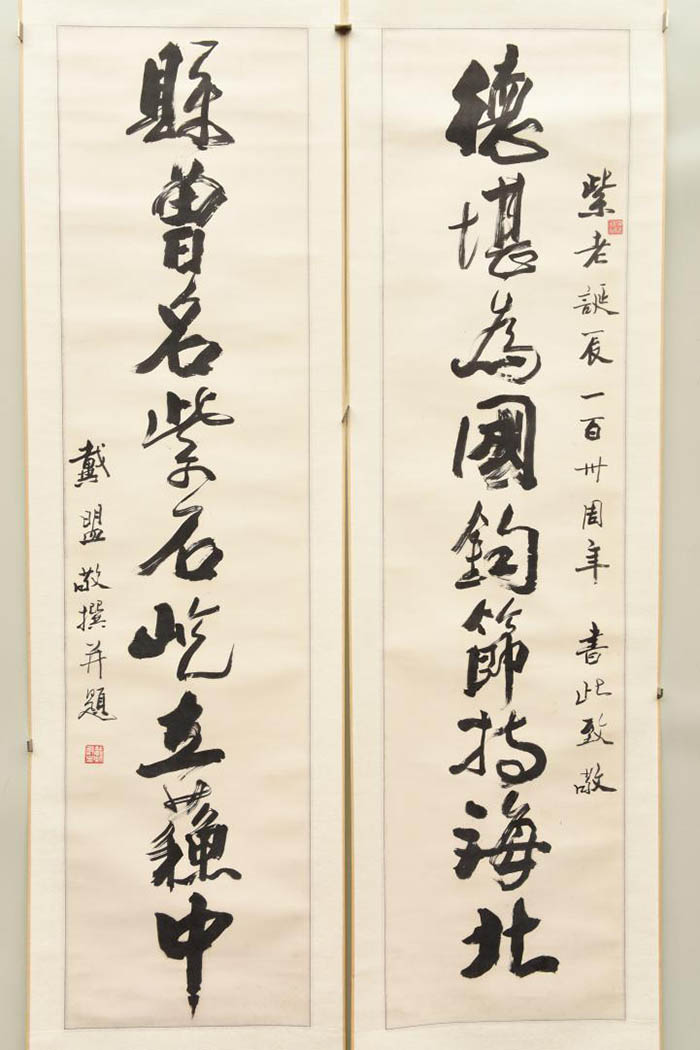 紫老誕辰一百卅周年 書此致敬
德堪為國鈞節持海北
縣曾名紫石屹立蘓中
戴盟敬撰并題